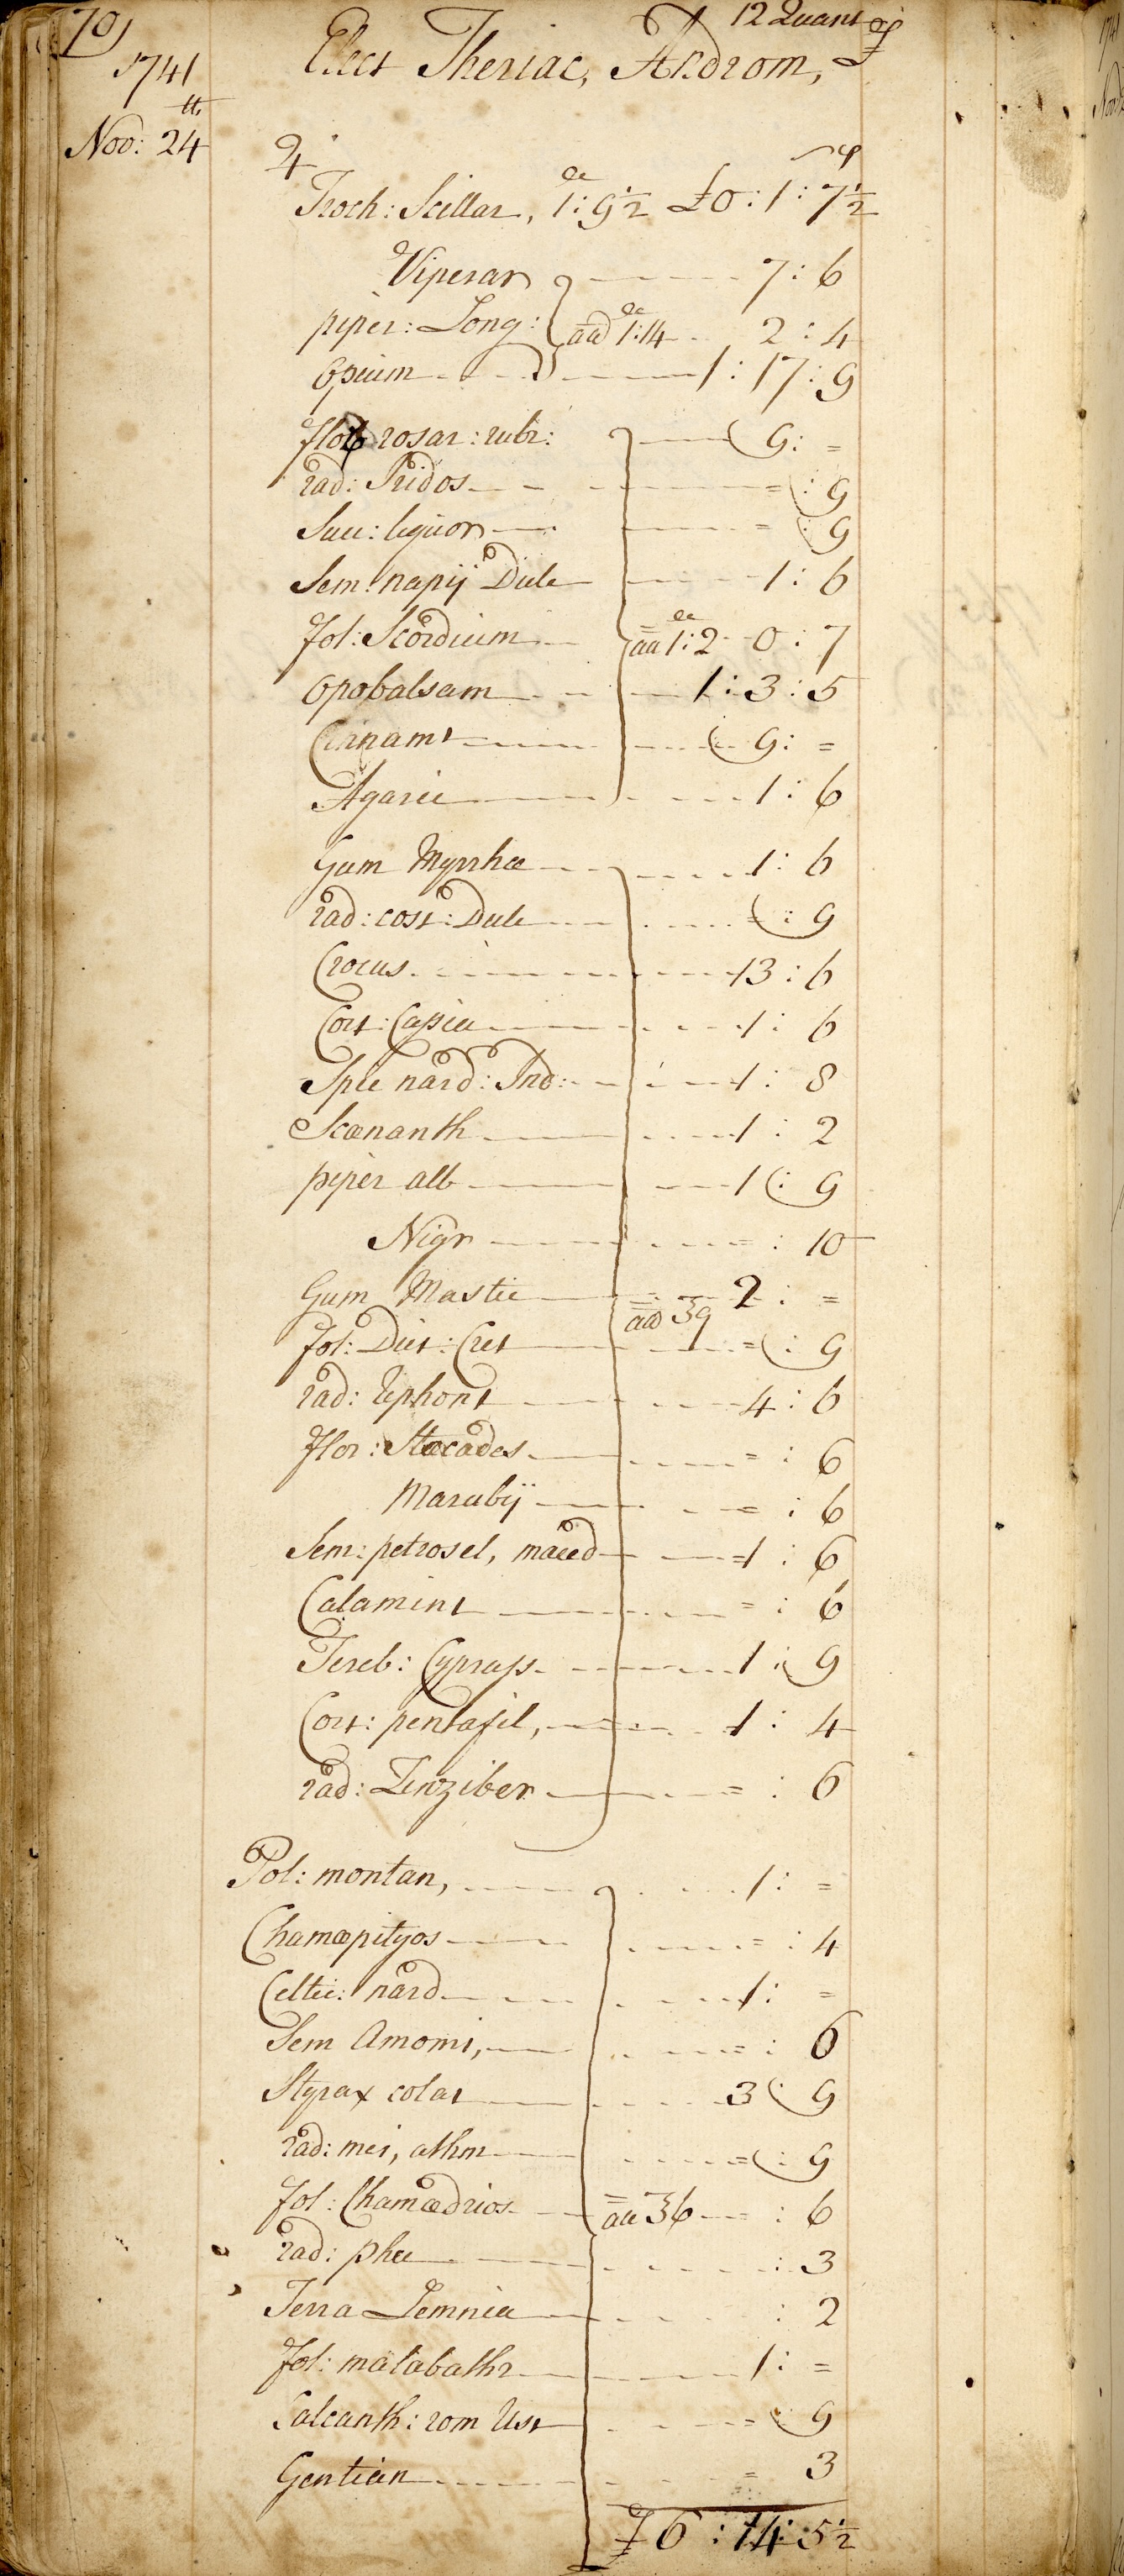 70)
1741
Nov: 24
Elect Theriac, Androm, 12 Quant
♃
Troch: Scillar, 1:9½ £0:1:7½
Viperar 7:6
piper: Long: aa 1:14 2:4
Opium 1:17:9
flor rosar: rubr: 9:=
rad: Iridos =:9
Suc: liquor =:9
Sem: napij Dulc 1:6
fol: Scordium aa 1:2 0:7
Opobalsam 1:3:5
Cinnamt 9:=
Agaric 1:6
Gum Myrrhæ 1:6
rad: cost: Dulc =:9
Crocus 13:6
Cort: Casia 1:6
Spic nard: Ind: 1:8
Scænanth 1:2
piper alb 1:9
Nigr =:10
Gum Mastic 2:=
aa ʒ9
fol: Dict: Cret =:9
rad: rephont 4:6
flor: Stæcados =:6
Marubij =:6
Sem: petrosel, maced 1:6
Calamint =:6
Tereb: Cypress 1:9
Cort: pentafil, 1:4
rad: Zinziber =:6
Pol: montan, 1:=
Chamæpityos =:4
Celtic: nard 1:=
Sem Amomi, =:6
Styrax colat 3:9
rad: mei, athm =:9
fol: Chamædrios aa ʒ6 =:6
rad: phu :3
Terra Lemnia :2
fol: malabathr 1:=
Calcanth: rom Ust =:9
Gentian = 3
£6:14:5½